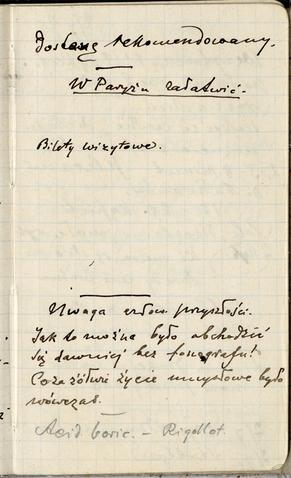 Dostanę rekomendowany.
W Paryżu załatwić.
Bilety wizytowe.
Uwaga człow. przyszłości.
Jak to można było obchodzić
się dawniej bez fonografu!
Co za żółwie życie umysłowe było
wówczas.
Acid. boric. - Rigollot.